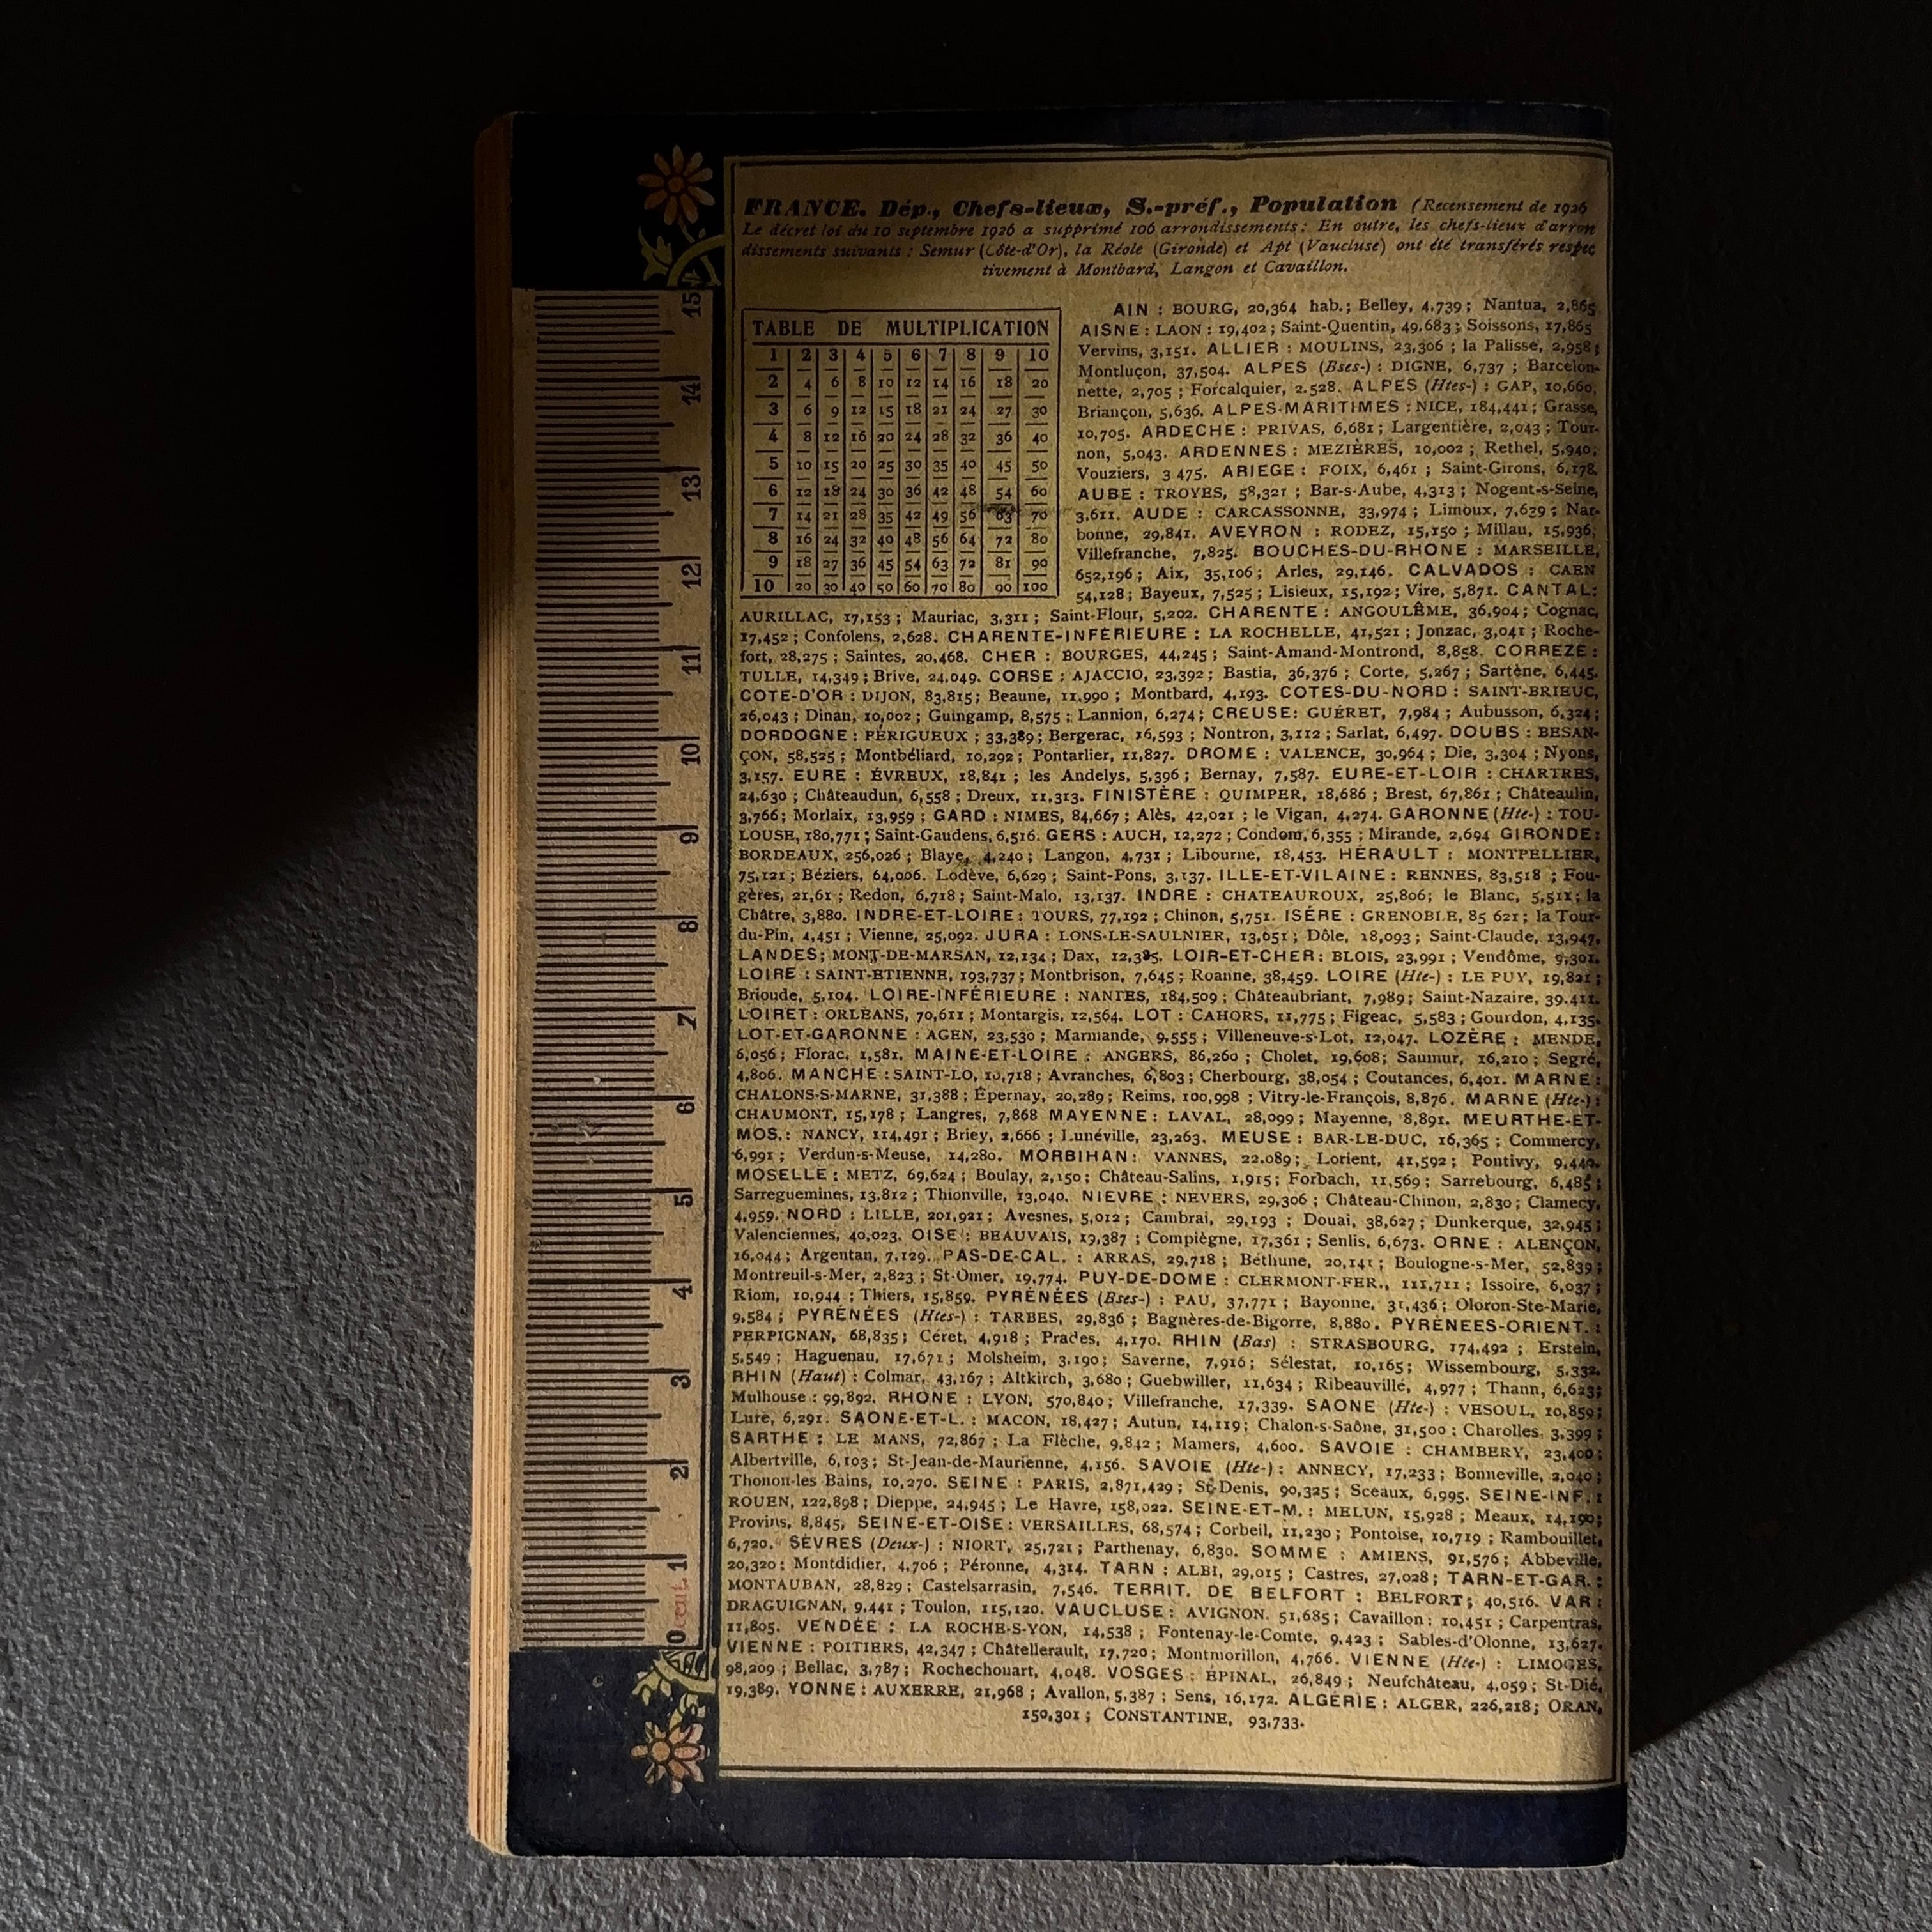 FRANCE. Dép., Chefs-lieux, S.-préf., Population (Recensement de 1926
Le décret loi du 10 septembre 1926 a supprimé 106 arrondissements: En outre, les chefs-lieux d'arron
dissements suivants : Semur (Côte-d'Or), la Réole (Gironde) et Apt (Vaucluse) ont été transférés respec
tivement à Montbard, Langon et Cavaillon.
TABLE DE MULTIPLICATION
1 2 3 4 5 6 7 8 9 10
2 4 6 8 10 12 14 16 18 20
3 6 9 12 15 18 21 24 27 30
4 8 12 16 20 24 28 32 36 40
5 10 15 20 25 30 35 40 45 50
6 12 18 24 30 36 42 48 54 60
7 14 21 28 35 42 49 56 63 70
8 16 24 32 40 48 56 64 72 80
9 18 27 36 45 54 63 72 81 90
10 20 30 40 50 60 70 80 90 100
AIN : BOURG, 20,364 hab.; Belley, 4,739; Nantua, 2,865
AISNE : LAON : 19,402; Saint-Quentin, 49.683; Soissons, 17,865
Vervins, 3,151. ALLIER : MOULINS, 23,306 ; la Palisse, 2,958;
Montluçon, 37,504. ALPES (Bses-) : DIGNE, 6,737 ; Barcelon-
nette, 2,705 ; Forcalquier, 2.528. ALPES (Htes-) : GAP, 10,660,
Briançon, 5,636. ALPES-MARITIMES : NICE, 184,441; Grasse,
10,705. ARDECHE : PRIVAS, 6,681; Largentière, 2,043; Tour-
non, 5,043. ARDENNES : MEZIÈRES, 10,002 ; Rethel, 5,940;
Vouziers, 3 475. ARIEGE : FOIX, 6,461 ; Saint-Girons, 6,178.
AUBE : TROYES, 58,321 ; Bar-s-Aube, 4,313 ; Nogent-s-Seine,
3,611. AUDE : CARCASSONNE, 33,974 ; Limoux, 7,639 ; Nar-
bonne, 29,841. AVEYRON : RODEZ, 15,150 ; Millau, 15,936;
Villefranche, 7,825. BOUCHES-DU-RHONE : MARSEILLE,
652,196; Aix, 35,106; Arles, 29,146. CALVADOS : CAEN
54,128; Bayeux, 7,525 ; Lisieux, 15,192; Vire, 5,871. CANTAL:
AURILLAC, 17,153 ; Mauriac, 3,311 ; Saint-Flour, 5,202. CHARENTE : ANGOULÊME, 36,904; Cognac,
17,452; Confolens, 2,628. CHARENTE-INFÉRIEURE : LA ROCHELLE, 41,521 ; Jonzac, 3,041 ; Roche-
fort, 28,275 ; Saintes, 20,468. CHER : BOURGES, 44,245 ; Saint-Amand-Montrond, 8,858. CORREZE :
TULLE, 14,349; Brive, 24,049. CORSE : AJACCIO, 23,392; Bastia, 36,376 ; Corte, 5,267 ; Sartène, 6,445.
COTE-D'OR : DIJON, 83,815; Beaune, 11,990 ; Montbard, 4,193. COTES-DU-NORD : SAINT-BRIEUC,
26,043 ; Dinan, 10,002 ; Guingamp, 8,575 ; Lannion, 6,274; CREUSE: GUÉRET, 7,984 ; Aubusson, 6,324;
DORDOGNE : PÉRIGUEUX ; 33,389; Bergerac, 16,593 ; Nontron, 3,112 ; Sarlat, 6,497. DOUBS : BESAN-
ÇON, 58,525 ; Montbéliard, 10,292; Pontarlier, 11,827. DROME : VALENCE, 30,964 ; Die, 3,304 ; Nyons,
3,157. EURE : ÉVREUX, 18,841 ; les Andelys, 5,396 ; Bernay, 7,587. EURE-ET-LOIR : CHARTRES,
24,630 ; Châteaudun, 6,558 ; Dreux, 11,313. FINISTÈRE : QUIMPER, 18,686 ; Brest, 67,861 ; Châteaulin,
3,766; Morlaix, 13,959 ; GARD : NIMES, 84,667; Alès, 42,021 ; le Vigan, 4,274. GARONNE (Hte-) : TOU-
LOUSE, 180,771; Saint-Gaudens, 6,516. GERS : AUCH, 12,272 ; Condom, 6,355 ; Mirande, 2,694 GIRONDE:
BORDEAUX, 256,026 ; Blaye, 4,240; Langon, 4,731 ; Libourne, 18,453. HÉRAULT : MONTPELLIER,
75,121; Béziers, 64,006. Lodève, 6,629 ; Saint-Pons, 3,137. ILLE-ET-VILAINE : RENNES, 83,518 ; Fou-
gères, 21,61 ; Redon, 6,718; Saint-Malo, 13,137. INDRE : CHATEAUROUX, 25,806; le Blanc, 5,511; la
Châtre, 3,880. INDRE-ET-LOIRE : TOURS, 77,192 ; Chinon, 5,751. ISÉRE : GRENOBLE, 85 621; la Tour-
du-Pin, 4,451 ; Vienne, 25,092. JURA : LONS-LE-SAULNIER, 13,651; Dôle, 18,093 ; Saint-Claude, 13,947.
LANDES; MONT-DE-MARSAN, 12,134; Dax, 12,385. LOIR-ET-CHER : BLOIS, 23,991 ; Vendôme, 9,301.
LOIRE : SAINT-ETIENNE, 193,737; Montbrison, 7,645; Roanne, 38,459. LOIRE (Hte-) : LE PUY, 19,821;
Brioude, 5,104. LOIRE-INFÉRIEURE : NANTES, 184,509; Châteaubriant, 7,989; Saint-Nazaire, 39.411.
LOIRET : ORLÉANS, 70,611 ; Montargis, 12,564. LOT : CAHORS, 11,775; Figeac, 5,583; Gourdon, 4,135.
LOT-ET-GARONNE : AGEN, 23,530 ; Marmande, 9,555 ; Villeneuve-s-Lot, 12,047. LOZÈRE : MENDE,
6,056; Florac, 1,581. MAINE-ET-LOIRE : ANGERS, 86,260 ; Cholet, 19,608; Saumur, 16,210 ; Segré,
4,806. MANCHE : SAINT-LO, 10,718; Avranches, 6,803; Cherbourg, 38,054 ; Coutances, 6,401. MARNE:
CHALONS-S-MARNE, 31,388; Épernay, 20,289; Reims, 100,998 ; Vitry-le-François, 8,876. MARNE (Hte-) :
CHAUMONT, 15,178 ; Langres, 7,868 MAYENNE : LAVAL, 28,099; Mayenne, 8,891. MEURTHE-ET-
MOS.: NANCY, 114,491 ; Briey, 2,666 ; Lunéville, 23,263. MEUSE : BAR-LE-DUC, 16,365 ; Commercy,
6,991 ; Verdun-s-Meuse, 14,280. MORBIHAN: VANNES, 22.089; Lorient, 41,592; Pontivy, 9,440.
MOSELLE : METZ, 69,624 ; Boulay, 2,150; Château-Salins, 1,915; Forbach, 11,569; Sarrebourg, 6,485;
Sarreguemines, 13,812 ; Thionville, 13,040. NIEVRE : NEVERS, 29,306 ; Château-Chinon, 2,830; Clamecy,
4,959. NORD : LILLE, 201,921; Avesnes, 5,012; Cambrai, 29,193 ; Douai, 38,627; Dunkerque, 32,945;
Valenciennes, 40,023. OISE : BEAUVAIS, 19,387 ; Compiègne, 17,361 ; Senlis, 6,673. ORNE : ALENÇON,
16,044; Argentan, 7,129. PAS-DE-CAL. : ARRAS, 29,718 ; Béthune, 20,141; Boulogne-s-Mer, 52,839;
Montreuil-s-Mer, 2,823 ; St-Omer, 19,774. PUY-DE-DOME : CLERMONT-FER., 111,711 ; Issoire, 6,037;
Riom, 10,944 ; Thiers, 15,859. PYRÉNÉES (Bses-) : PAU, 37,771 ; Bayonne, 31,436; Oloron-Ste-Marie,
9,584; PYRÉNÉES (Htes-) : TARBES, 29,836 ; Bagnères-de-Bigorre, 8,880. PYRÉNEES-ORIENT. :
PERPIGNAN, 68,835; Céret, 4,918 ; Prades, 4,170. RHIN (Bas) : STRASBOURG, 174,492 ; Erstein,
5,549 ; Haguenau, 17,671; Molsheim, 3,190; Saverne, 7,916; Sélestat, 10,165; Wissembourg, 5,332.
RHIN (Haut) : Colmar, 43,167 ; Altkirch, 3,680; Guebwiller, 11,634 ; Ribeauvillé, 4,977 ; Thann, 6,623;
Mulhouse : 99,892. RHONE : LYON, 570,840; Villefranche, 17,339. SAONE (Hte-) : VESOUL, 10,859;
Lure, 6,291. SAONE-ET-L. : MACON, 18,427; Autun, 14,119; Chalon-s-Saône, 31,500 ; Charolles, 3,399;
SARTHE : LE MANS, 72,867 ; La Flèche, 9,842; Mamers, 4,600. SAVOIE : CHAMBERY, 23,400;
Albertville, 6,103; St-Jean-de-Maurienne, 4,156. SAVOIE (Hte-) : ANNECY, 17,233 ; Bonneville, 2,040;
Thonon-les Bains, 10,270. SEINE : PARIS, 2,871,429 ; St-Denis, 90,325; Sceaux, 6,995. SEINE-INF. :
ROUEN, 122,898; Dieppe, 24,945 ; Le Havre, 158,022. SEINE-ET-M. : MELUN, 15,928 ; Meaux, 14,190;
Provins, 8,845, SEINE-ET-OISE: VERSAILLES, 68,574; Corbeil, 11,230; Pontoise, 10,719 ; Rambouillet,
6,720. SÈVRES (Deux-) : NIORT, 25,721; Parthenay, 6,830. SOMME : AMIENS, 91,576; Abbeville,
20,320; Montdidier, 4,706 ; Péronne, 4,314. TARN : ALBI, 29,015 ; Castres, 27,028; TARN-ET-GAR. :
MONTAUBAN, 28,829; Castelsarrasin, 7,546. TERRIT. DE BELFORT : BELFORT; 40,516. VAR :
DRAGUIGNAN, 9,441 ; Toulon, 115,120. VAUCLUSE : AVIGNON. 51,685; Cavaillon: 10,451 ; Carpentras,
11,805. VENDÉE : LA ROCHE-S-YON, 14,538 ; Fontenay-le-Comte, 9,423 ; Sables-d'Olonne, 13,627.
VIENNE : POITIERS, 42,347 ; Châtellerault, 17,720; Montmorillon, 4,766. VIENNE (Hte-) : LIMOGES,
98,209 ; Bellac, 3,787; Rochechouart, 4,048. VOSGES : ÉPINAL, 26,849 ; Neufchâteau, 4,059; St-Dié,
19,389. YONNE : AUXERRE, 21,968 ; Avallon, 5,387 ; Sens, 16,172. ALGÉRIE : ALGER, 226,218; ORAN,
150,301 ; CONSTANTINE, 93,733.
15
14
13
12
11
10
9
8
7
6
5
4
3
2
1
0